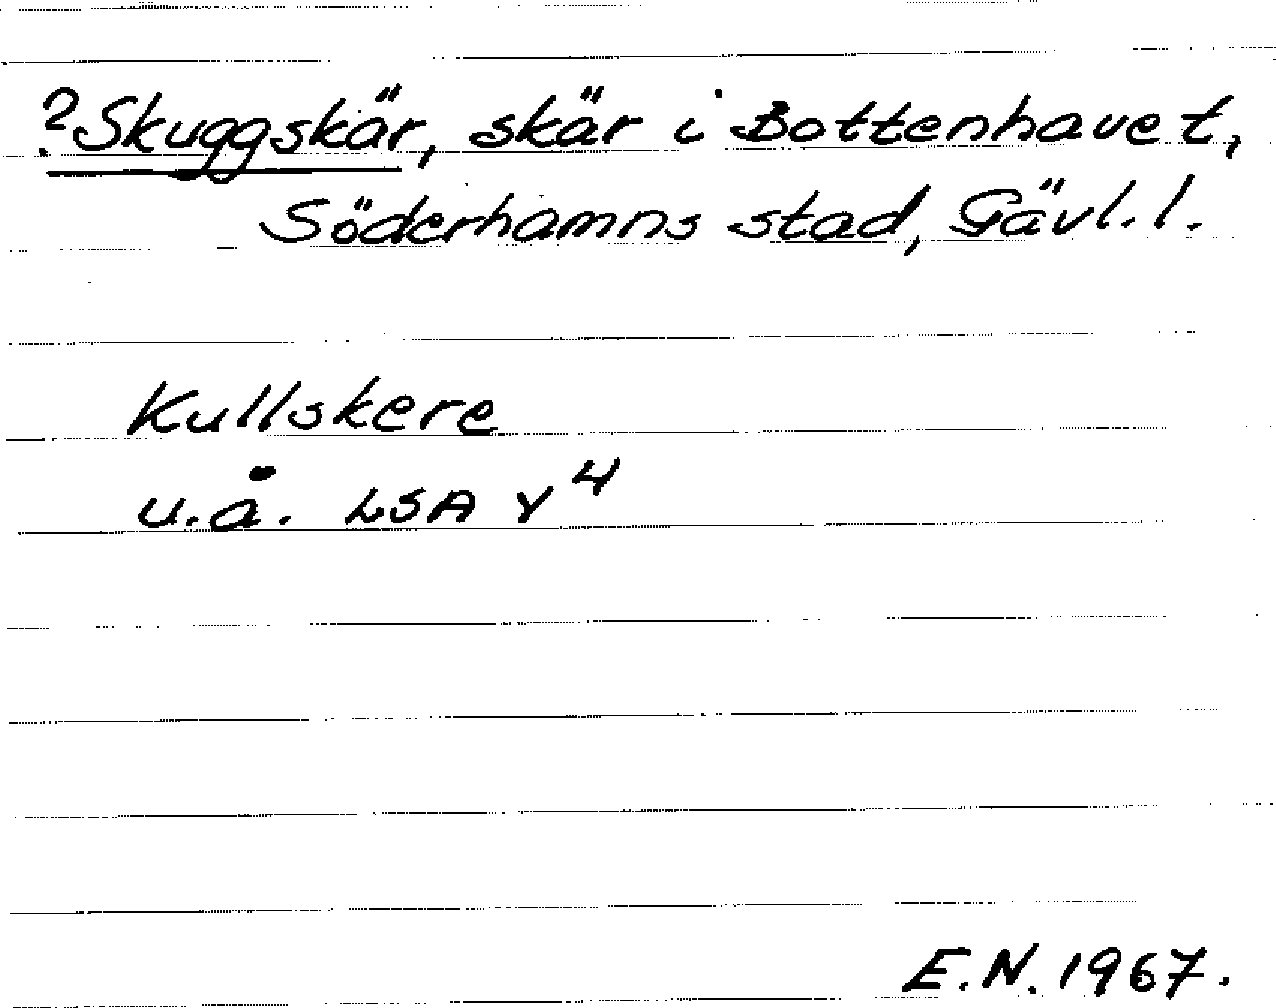 ?Skuggskär, skär i Bottenhavet,
Söderhamns stad, Gävl. l.
Kullskere
u.å. LSA Y⁴
E.N. 1967.